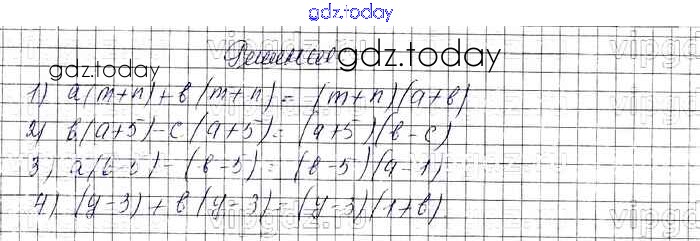 gdz.today
Решение gdz.today
gdz.today
1) a(m+n)+b(m+n)=(m+n)(a+b)
2) b(a+5)-c(a+5)=(a+5)(b-c)
3) a(b-5)-(b-5)=(b-5)(a-1)
4) (y-3)+b(y-3)=(y-3)(1+b)